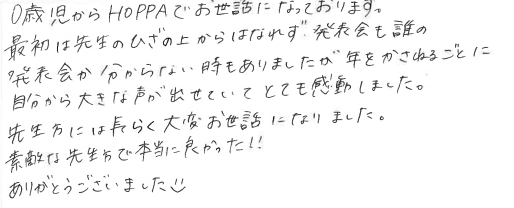 0歳児からHOPPAでお世話になっております。
最初は先生のひざの上からはなれず発表会も誰の
発表会か分からない時もありましたが年をかさねるごとに
自分から大きな声が出せていてとても感動しました。
先生方には長らく大変お世話になりました。
素敵な先生方で本当に良かった!!
ありがとうございました☺